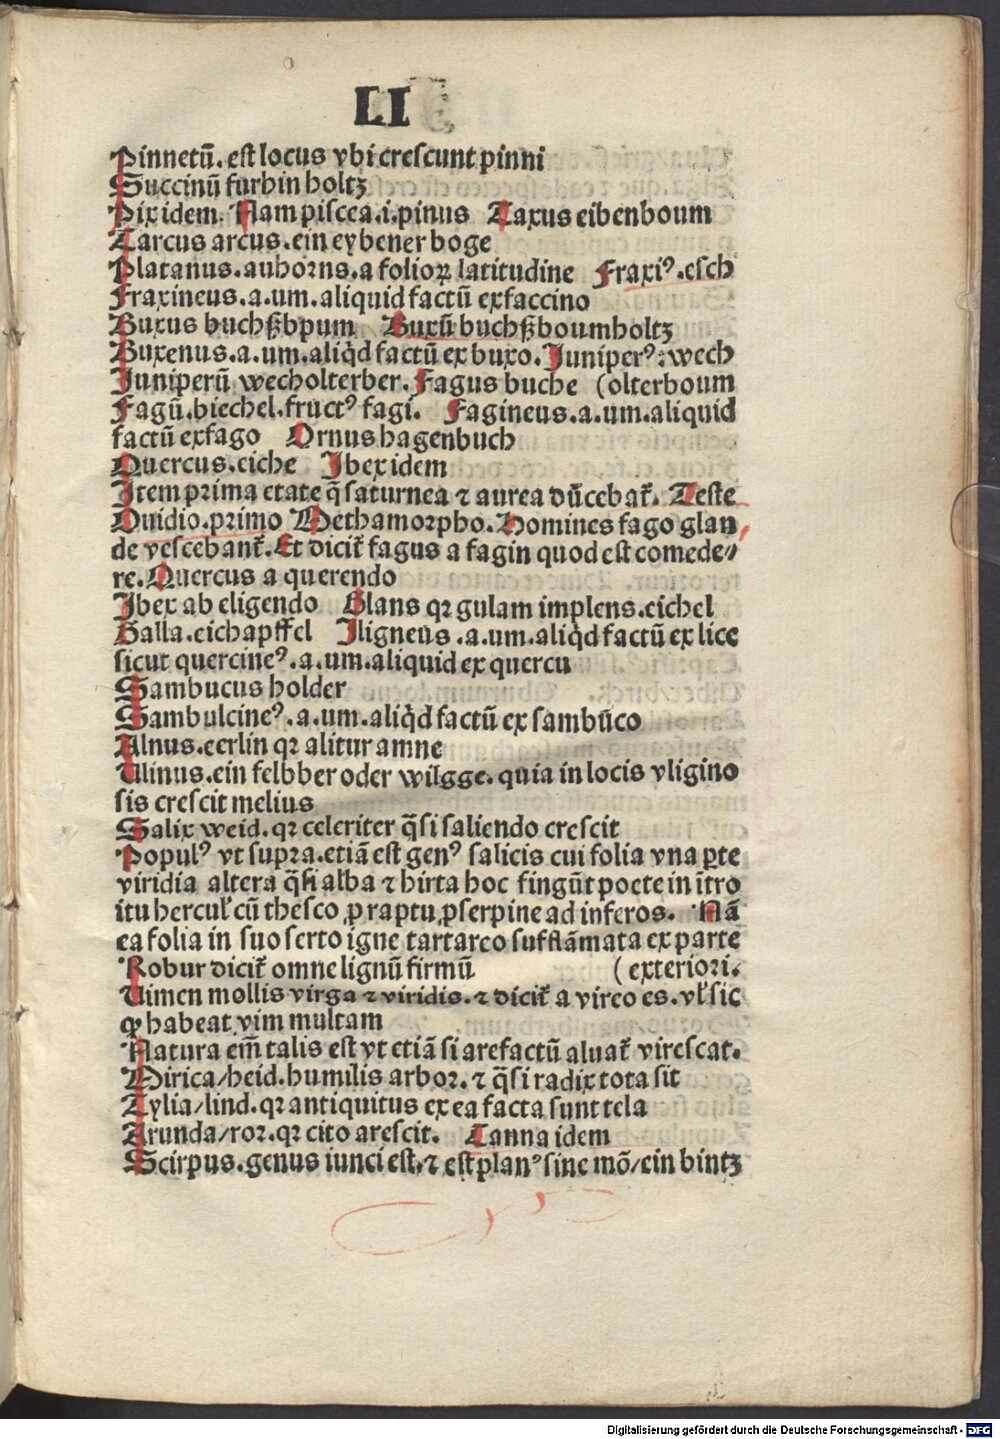 LI
Pinnetū. est locus vbi crescunt pinni
Succinū furhin holtz
Pix idem. Nam piscea .i. pinus Taxus eibenboum
Tarcus arcus. ein eybener boge
Platanus. auhorns. a folioꝝ latitudine Fraxiꝰ. esch
Fraxineus .a.um. aliquid factū exfaccino
Buxus buchßbpum Buxū buchßboumholtz
Buxenus .a.um. aliq̇d factū ex buxo. Juniperꝰ: wech
Juniperū wecholterber. Fagus buche (olterboum
Fagū. biechel. fructꝰ fagi. Fagineus .a.um. aliquid
factū exfago Ornus hagenbuch
Quercus. eiche Ibex idem
Item prima etate q̄ saturnea ⁊ aurea dūcebat̄. Teste
Ouidio. primo Methamorpho. Homines fago glan
de vescebant̄. Et dicit̄ fagus a fagin quod est comede⸗
re. Quercus a querendo
Ibex ab eligendo Glans qꝛ gulam implens. eichel
Galla. eichapffel Iligneus .a.um. aliq̇d factū ex lice
sicut quercineꝰ .a.um. aliquid ex quercu
Sambucus holder
Sambulcineꝰ .a.um. aliq̇d factū ex sambūco
Alnus. eerlin qꝛ alitur amne
Ulinus. ein felbber oder wilgge. quia in locis vligino
sis crescit melius
Salix weid. qꝛ celeriter q̄si saliendo crescit
Populꝰ vt supra. etiā est genꝰ salicis cui folia vna ꝑte
viridia altera q̄si alba ⁊ hirta hoc fingūt poete in ītro
itu hercul̄ cū theseo ꝓ raptu ꝓserpine ad inferos. Nā
ea folia in suo serto igne tartareo sufflāmata ex parte
Robur dicit̄ omne lignū firmū (exteriori.
Uimen mollis virga ⁊ viridis. ⁊ dicit̄ a vireo es. vl̄ sic
ꝙ habeat vim multam
Natura em̄ talis est vt etiā si arefactū aluat̄ virescat.
Mirica/heid. humilis arbor. ⁊ q̄si radix tota sit
Tylia/lind. qꝛ antiquitus ex ea facta sunt tela
Arunda/ror. qꝛ cito arescit. Canna idem
Scirpus. genus iunci est, ⁊ est planꝰ sine mō/ein bintz
Digitalisierung gefördert durch die Deutsche Forschungsgemeinschaft - DFG